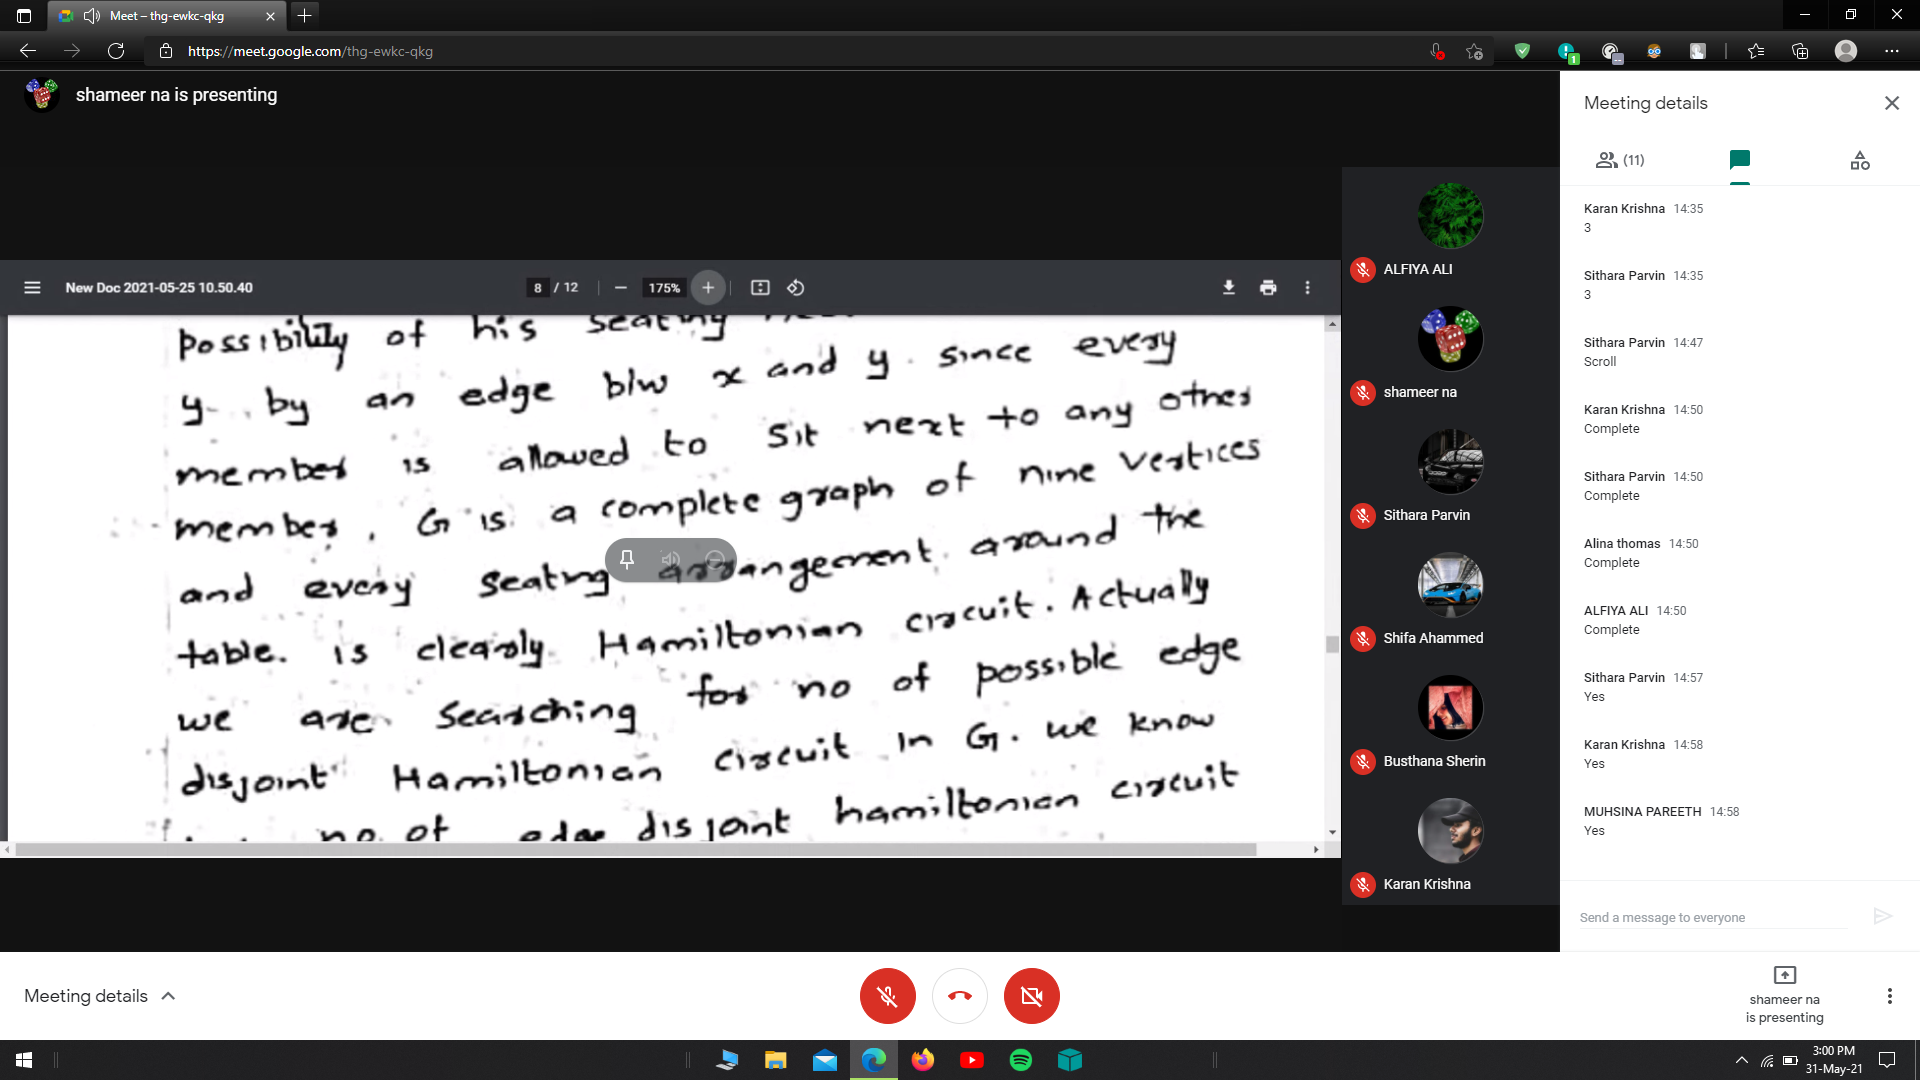 Meet – thg-ewkc-qkg
https://meet.google.com/thg-ewkc-qkg
shameer na is presenting
New Doc 2021-05-25 10.50.40
8 / 12
175%
possibility of his seating
y. by an edge b/w x and y. since every
member is allowed to sit next to any other
member, G is a complete graph of nine vertices
and every seating arrangement around the
table. is clearly Hamiltonian circuit. Actually
we are searching for no of possible edge
disjoint Hamiltonian circuit in G. we know
no. of edge disjoint hamiltonian circuit
ALFIYA ALI
shameer na
Sithara Parvin
Shifa Ahammed
Busthana Sherin
Karan Krishna
Meeting details
(11)
Karan Krishna 14:35
3
Sithara Parvin 14:35
3
Sithara Parvin 14:47
Scroll
Karan Krishna 14:50
Complete
Sithara Parvin 14:50
Complete
Alina thomas 14:50
Complete
ALFIYA ALI 14:50
Complete
Sithara Parvin 14:57
Yes
Karan Krishna 14:58
Yes
MUHSINA PAREETH 14:58
Yes
Send a message to everyone
Meeting details
shameer na
is presenting
3:00 PM
31-May-21